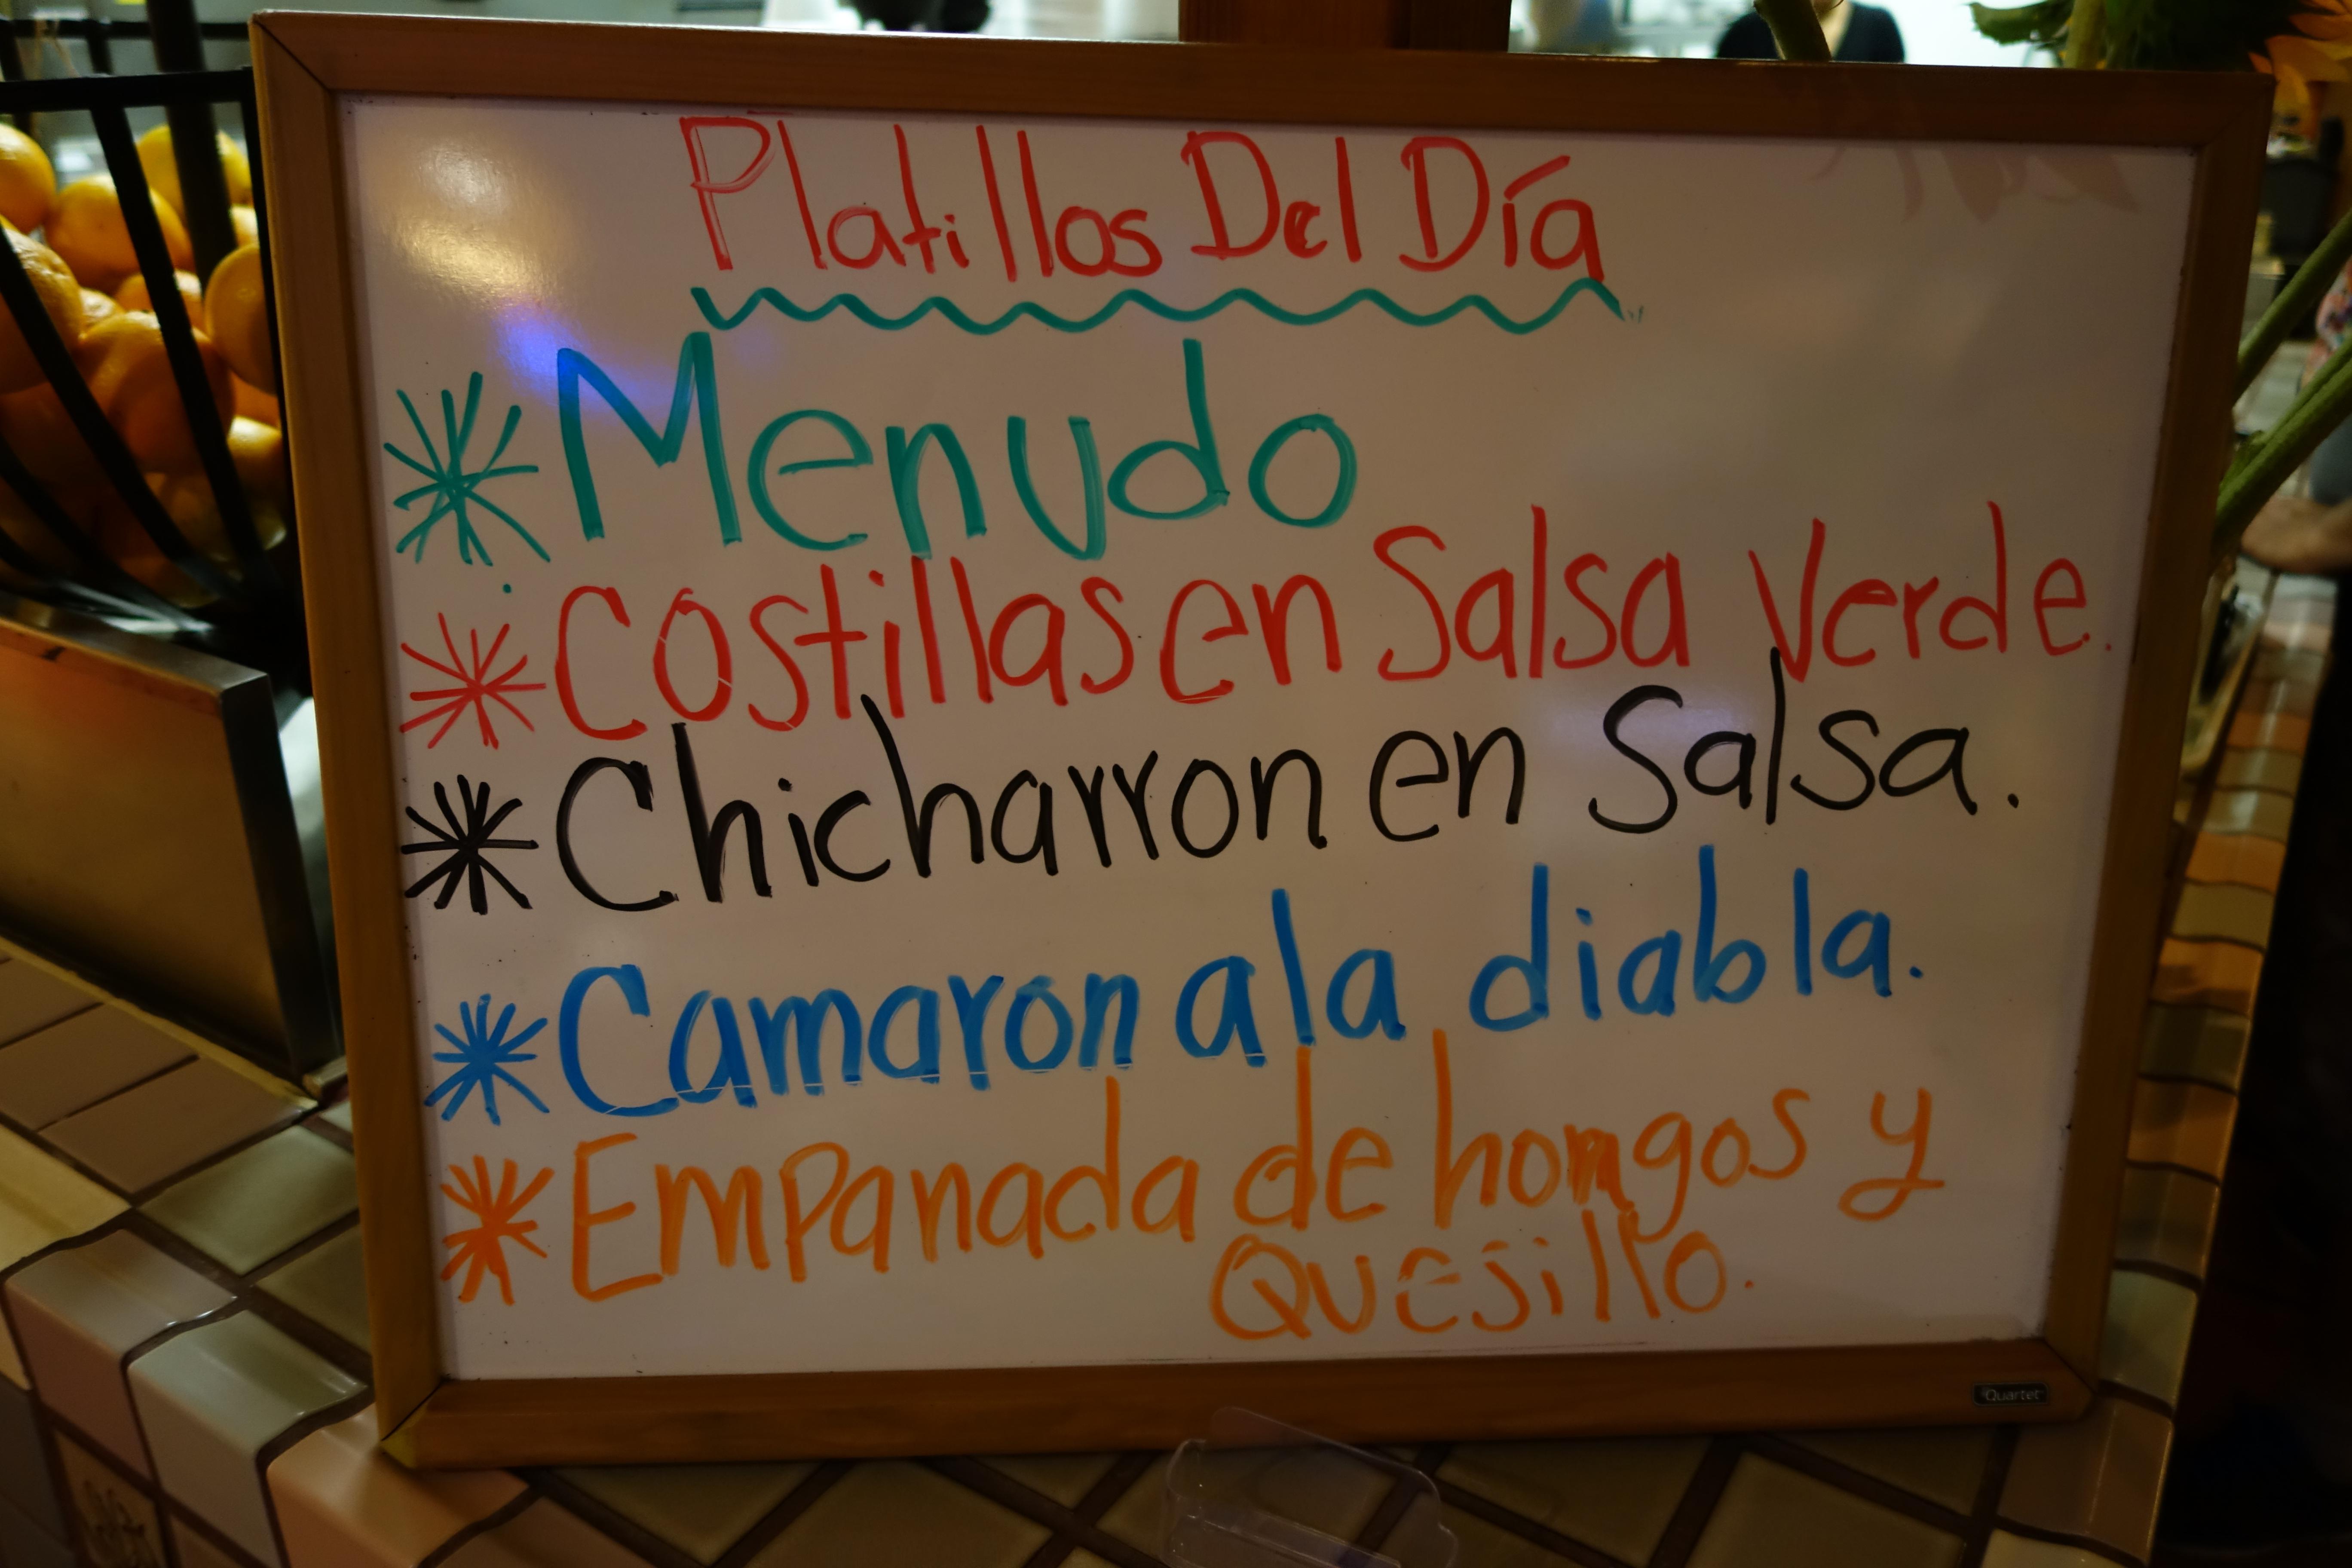 Platillos Del Día
Menudo
Costillas en Salsa Verde.
Chicharron en Salsa.
Camaron ala diabla.
Empanada de hongos y
Quesillo.
Quartet